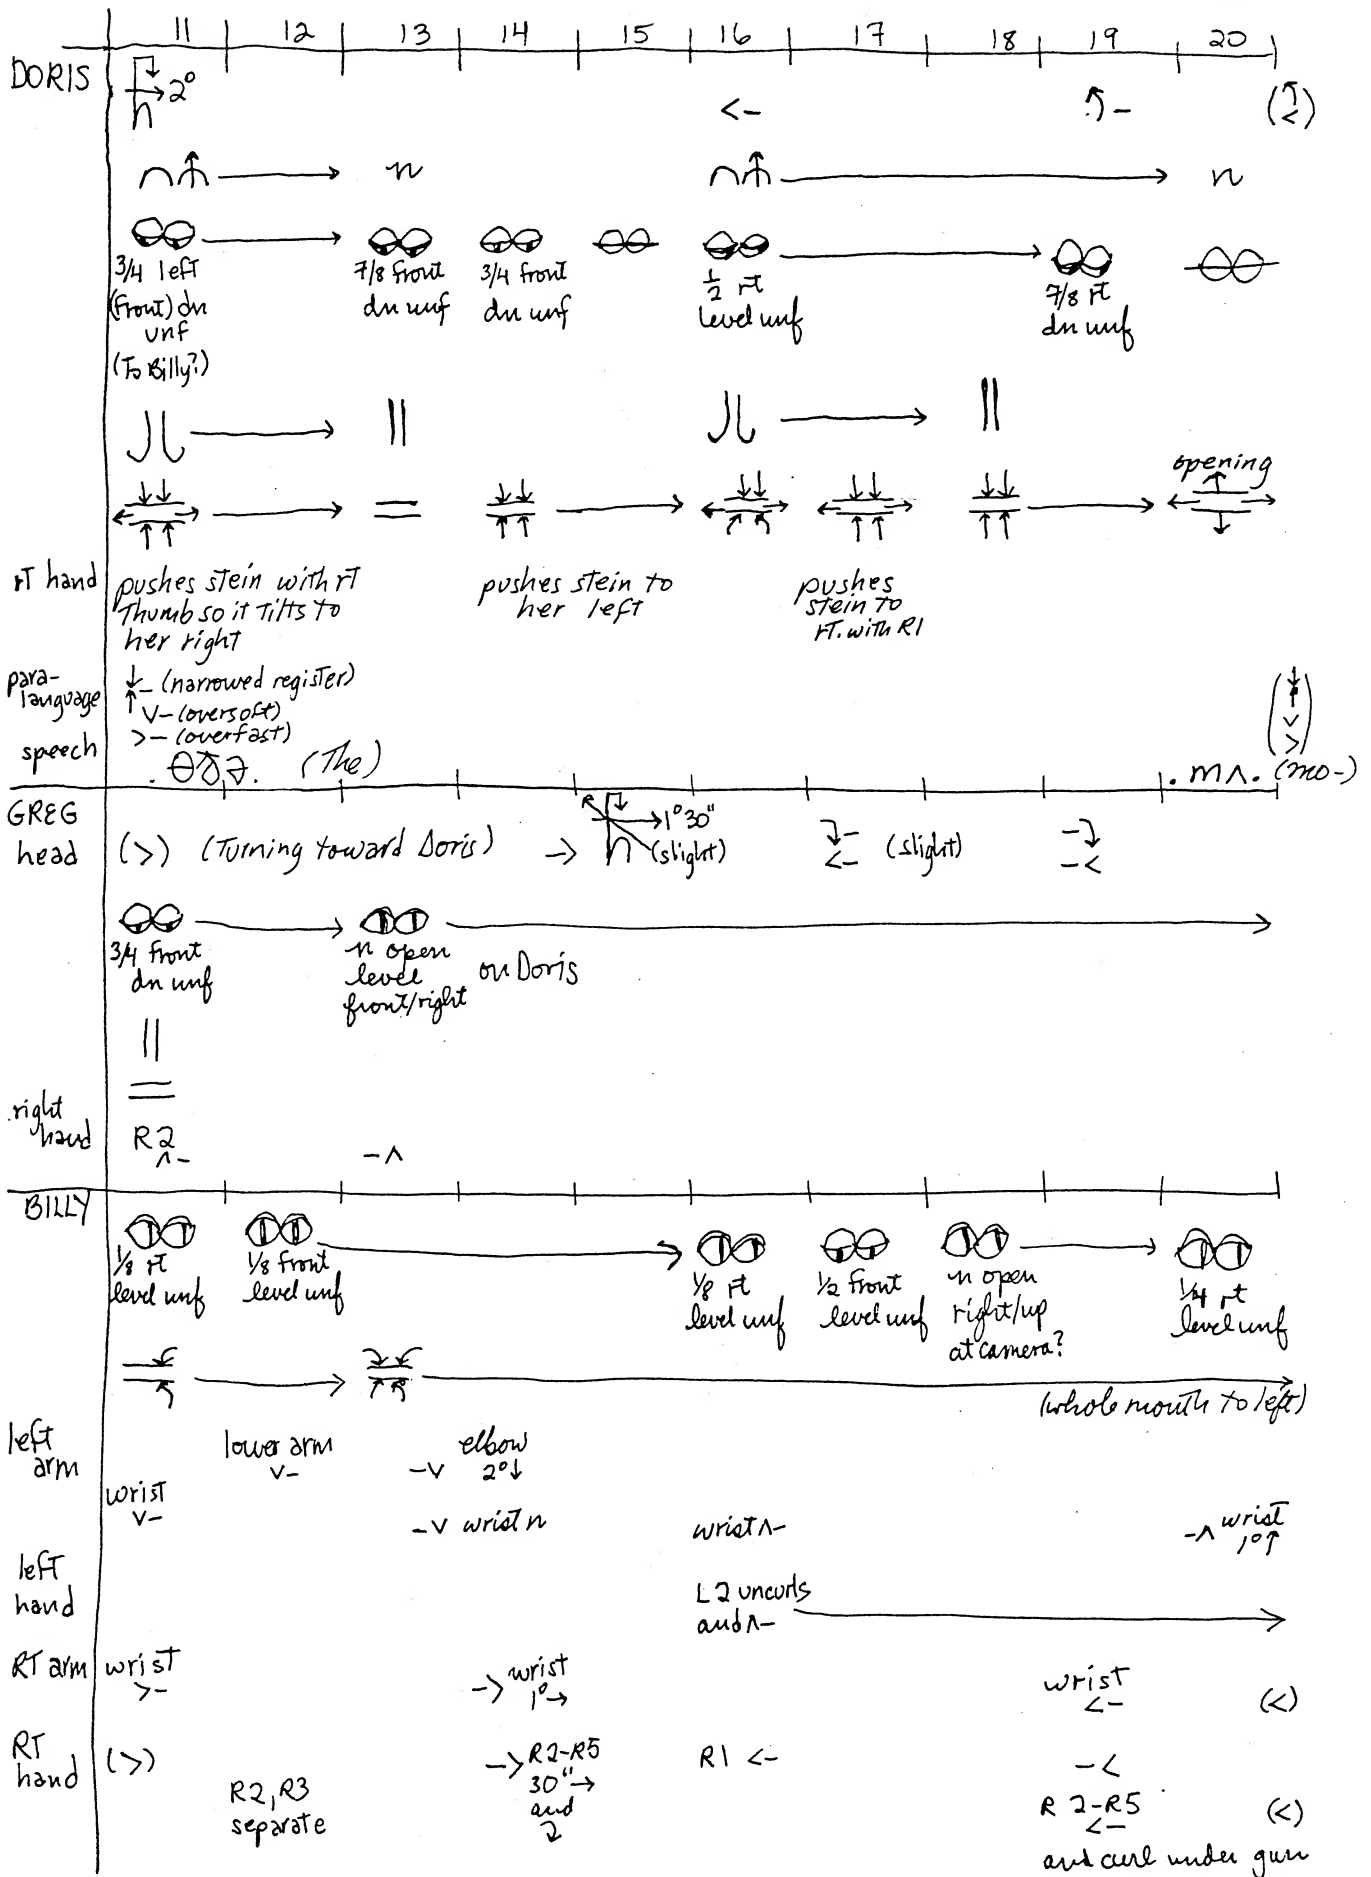 11 12 13 14 15 16 17 18 19 20
DORIS
n 2°
<-
n n
3/4 left
(front) dn
unf
(To Billy?)
7/8 front
dn unf
3/4 front
dn unf
1/2 rt
level unf
7/8 rt
dn unf
opening
rt hand
pushes stein with rt
Thumb so it Tilts to
her right
pushes stein to
her left
pushes
stein to
rT. with R1
para-
language
(narrowed register)
v- (oversoft)
>- (overfast)
speech
(The)
.mʌ. (mo-)
GREG
head
(>) (Turning toward Doris)
->
n 1° 30"
(slight)
<- (slight)
-<
3/4 front
dn unf
n open
level
front/right
on Doris
right
hand
R2
ʌ-
-ʌ
BILLY
1/8 rt
level unf
1/8 front
level unf
1/8 rt
level unf
1/2 front
level unf
n open
right/up
at camera?
1/4 rt
level unf
(whole mouth to left)
left
arm
lower arm
v-
-v
elbow
2°↓
wrist
v-
-v wrist n
wrist ʌ-
-ʌ wrist
1°↑
left
hand
L2 uncurls
and ʌ-
RT arm
wrist
>-
-> wrist
1°→
wrist
<-
(<)
RT
hand
(>)
R2, R3
separate
-> R2-R5
30"→
and
R1 <-
-<
R 2-R5
<-
(<)
and curl under gun